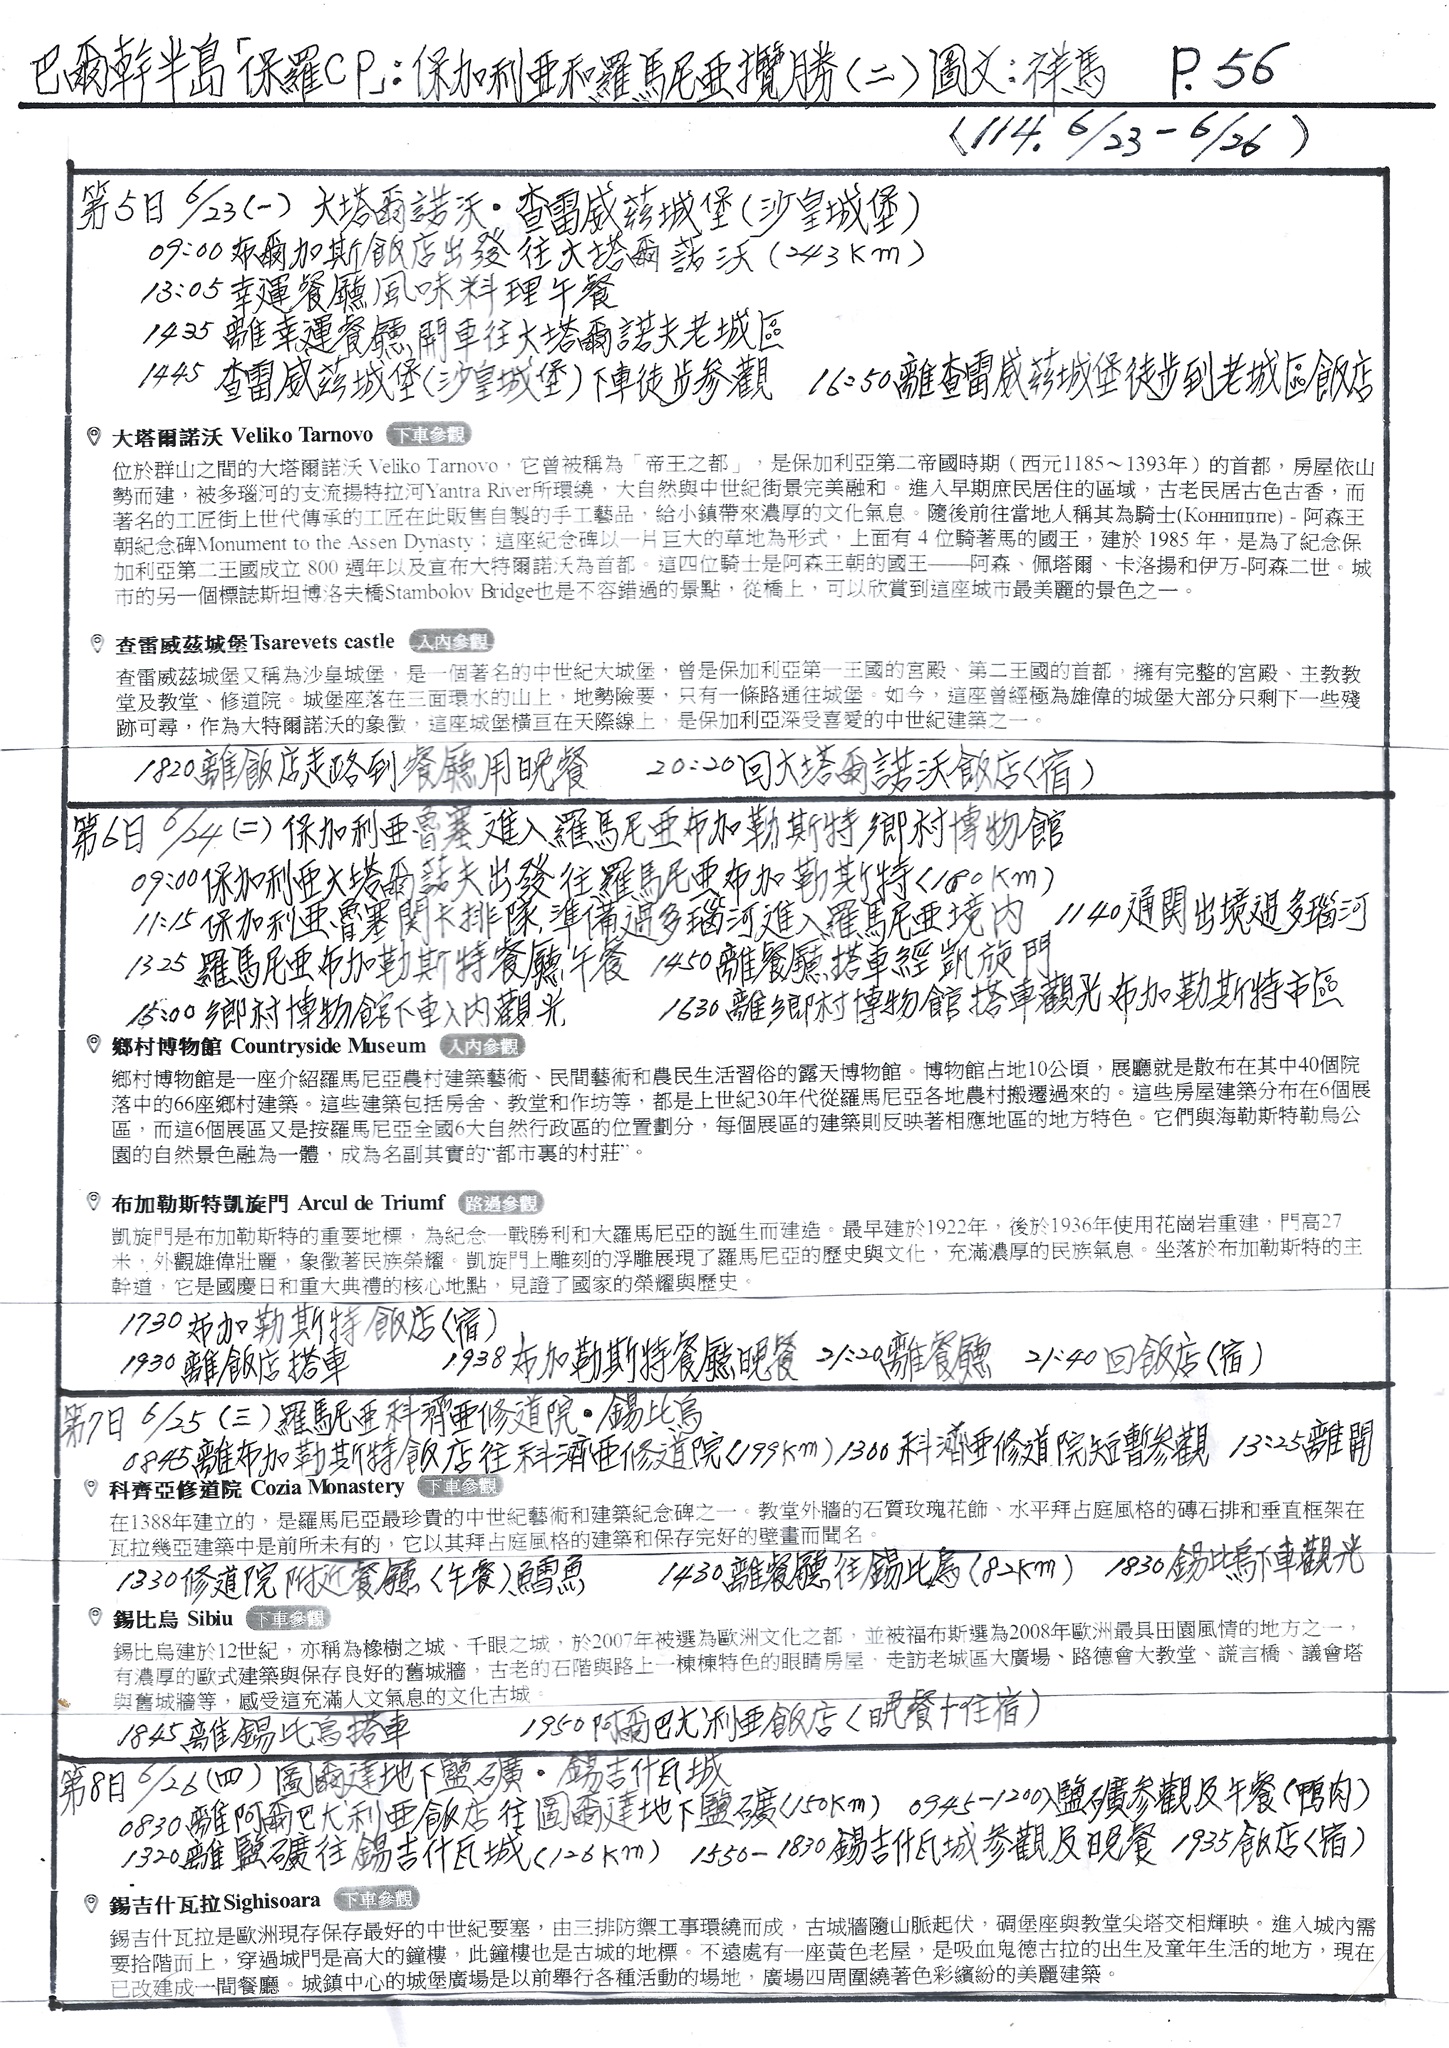 巴爾幹半島「保羅CP」：保加利亞和羅馬尼亞攬勝(二)圖文：祥馬 P.56
(114. 6/23-6/26)
第5日 6/23(一) 大塔爾諾沃·查雷威茲城堡(沙皇城堡)
09:00 布爾加斯飯店出發往大塔爾諾沃(243Km)
13:05 幸運餐廳風味料理午餐
1435 離幸運餐廳開車往大塔爾諾夫老城區
1445 查雷威茲城堡(沙皇城堡)下車徒步參觀 16:50離查雷威茲城堡徒步到老城區飯店
大塔爾諾沃 Veliko Tarnovo 下車參觀
位於群山之間的大塔爾諾沃 Veliko Tarnovo，它曾被稱為「帝王之都」，是保加利亞第二帝國時期（西元1185～1393年）的首都，房屋依山
勢而建，被多瑙河的支流揚特拉河Yantra River所環繞，大自然與中世紀街景完美融和。進入早期庶民居住的區域，古老民居古色古香，而
著名的工匠街上世代傳承的工匠在此販售自製的手工藝品，給小鎮帶來濃厚的文化氣息。隨後前往當地人稱其為騎士(Конниците) - 阿森王
朝紀念碑Monument to the Assen Dynasty；這座紀念碑以一片巨大的草地為形式，上面有 4 位騎著馬的國王，建於 1985 年，是為了紀念保
加利亞第二王國成立 800 週年以及宣布大特爾諾沃為首都。這四位騎士是阿森王朝的國王——阿森、佩塔爾、卡洛揚和伊万-阿森二世。城
市的另一個標誌斯坦博洛夫橋Stambolov Bridge也是不容錯過的景點，從橋上，可以欣賞到這座城市最美麗的景色之一。
查雷威茲城堡Tsarevets castle 入內參觀
查雷威茲城堡又稱為沙皇城堡，是一個著名的中世紀大城堡，曾是保加利亞第一王國的宮殿、第二王國的首都，擁有完整的宮殿、主教教
堂及教堂、修道院。城堡座落在三面環水的山上，地勢險要，只有一條路通往城堡。如今，這座曾經極為雄偉的城堡大部分只剩下一些殘
跡可尋，作為大特爾諾沃的象徵，這座城堡橫亘在天際線上，是保加利亞深受喜愛的中世紀建築之一。
1820離飯店走路到餐廳用晚餐 20:20回大塔爾諾沃飯店(宿)
第6日 6/24(二) 保加利亞魯塞進入羅馬尼亞布加勒斯特鄉村博物館
09:00保加利亞大塔爾諾夫出發往羅馬尼亞布加勒斯特(180Km)
11:15 保加利亞魯塞關卡排隊準備過多瑙河進入羅馬尼亞境內 1140通關出境過多瑙河
1325 羅馬尼亞布加勒斯特餐廳午餐 1450離餐廳搭車經凱旋門
15:00鄉村博物館下車入內觀光 1630離鄉村博物館搭車觀光布加勒斯特市區
鄉村博物館 Countryside Museum 入內參觀
鄉村博物館是一座介紹羅馬尼亞農村建築藝術、民間藝術和農民生活習俗的露天博物館。博物館占地10公頃，展廳就是散布在其中40個院
落中的66座鄉村建築。這些建築包括房舍、教堂和作坊等，都是上世紀30年代從羅馬尼亞各地農村搬遷過來的。這些房屋建築分布在6個展
區，而這6個展區又是按羅馬尼亞全國6大自然行政區的位置劃分，每個展區的建築則反映著相應地區的地方特色。它們與海勒斯特勒烏公
園的自然景色融為一體，成為名副其實的"都市裏的村莊"。
布加勒斯特凱旋門 Arcul de Triumf 路過參觀
凱旋門是布加勒斯特的重要地標，為紀念一戰勝利和大羅馬尼亞的誕生而建造。最早建於1922年，後於1936年使用花崗岩重建，門高27
米，外觀雄偉壯麗，象徵著民族榮耀。凱旋門上雕刻的浮雕展現了羅馬尼亞的歷史與文化，充滿濃厚的民族氣息。坐落於布加勒斯特的主
幹道，它是國慶日和重大典禮的核心地點，見證了國家的榮耀與歷史。
1730布加勒斯特飯店(宿)
1930離飯店搭車 1938布加勒斯特餐廳晚餐 21:20離餐廳 21:40回飯店(宿)
第7日 6/25(三)羅馬尼亞科濟亞修道院·錫比烏
0845離布加勒斯特飯店往科濟亞修道院(199Km) 1300科濟亞修道院短暫參觀 13:25離開
科齊亞修道院 Cozia Monastery 下車參觀
在1388年建立的，是羅馬尼亞最珍貴的中世紀藝術和建築紀念碑之一。教堂外牆的石質玫瑰花飾、水平拜占庭風格的磚石排和垂直框架在
瓦拉幾亞建築中是前所未有的，它以其拜占庭風格的建築和保存完好的壁畫而聞名。
1330修道院附近餐廳(午餐)鱈魚 1430離餐廳往錫比烏(82Km) 1830錫比烏下車觀光
錫比烏 Sibiu 下車參觀
錫比烏建於12世紀，亦稱為橡樹之城、千眼之城，於2007年被選為歐洲文化之都，並被福布斯選為2008年歐洲最具田園風情的地方之一，
有濃厚的歐式建築與保存良好的舊城牆，古老的石階與路上一棟棟特色的眼睛房屋，走訪老城區大廣場、路德會大教堂、謊言橋、議會塔
與舊城牆等，感受這充滿人文氣息的文化古城。
1845離錫比烏搭車 1950阿爾巴尤利亞飯店(晚餐+住宿)
第8日 6/26(四) 圖爾達地下鹽礦·錫吉什瓦城
0830離阿爾巴尤利亞飯店往圖爾達地下鹽礦(150Km) 0945-1200入鹽礦參觀及午餐(鴨肉)
1320離鹽礦往錫吉什瓦城(126Km) 1550-1830錫吉什瓦城參觀及晚餐 1935飯店(宿)
錫吉什瓦拉Sighisoara 下車參觀
錫吉什瓦拉是歐洲現存保存最好的中世紀要塞，由三排防禦工事環繞而成，古城牆隨山脈起伏，碉堡座與教堂尖塔交相輝映。進入城內需
要拾階而上，穿過城門是高大的鐘樓，此鐘樓也是古城的地標。不遠處有一座黃色老屋，是吸血鬼德古拉的出生及童年生活的地方，現在
已改建成一間餐廳。城鎮中心的城堡廣場是以前舉行各種活動的場地，廣場四周圍繞著色彩繽紛的美麗建築。